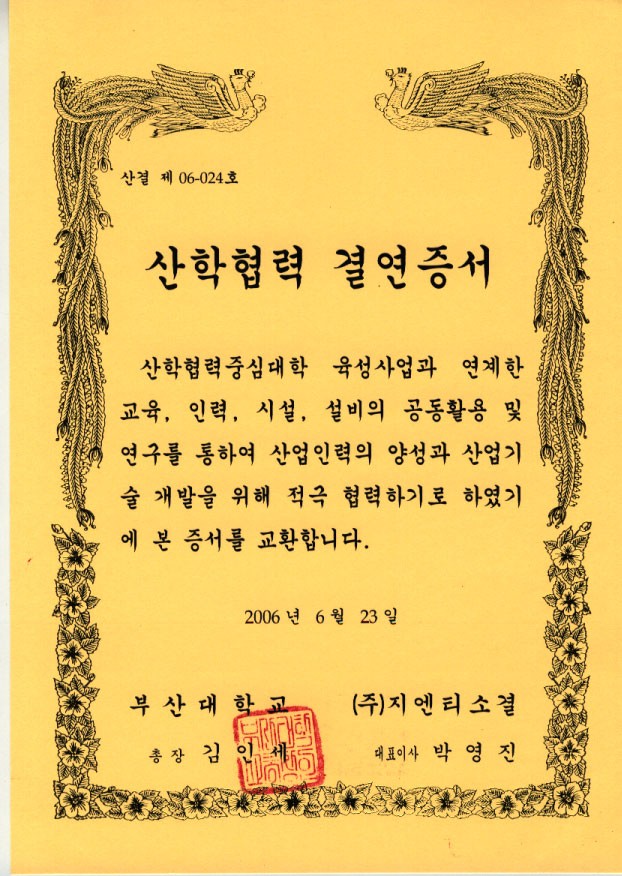 산결 제 06-024호
산학협력 결연증서
산학협력중심대학 육성사업과 연계한
교육, 인력, 시설, 설비의 공동활용 및
연구를 통하여 산업인력의 양성과 산업기
술 개발을 위해 적극 협력하기로 하였기
에 본 증서를 교환합니다.
2006 년 6 월 23 일
부 산 대 학 교 (주)지 엔 티 소 결
총 장 김 인 세 대표이사 박 영 진